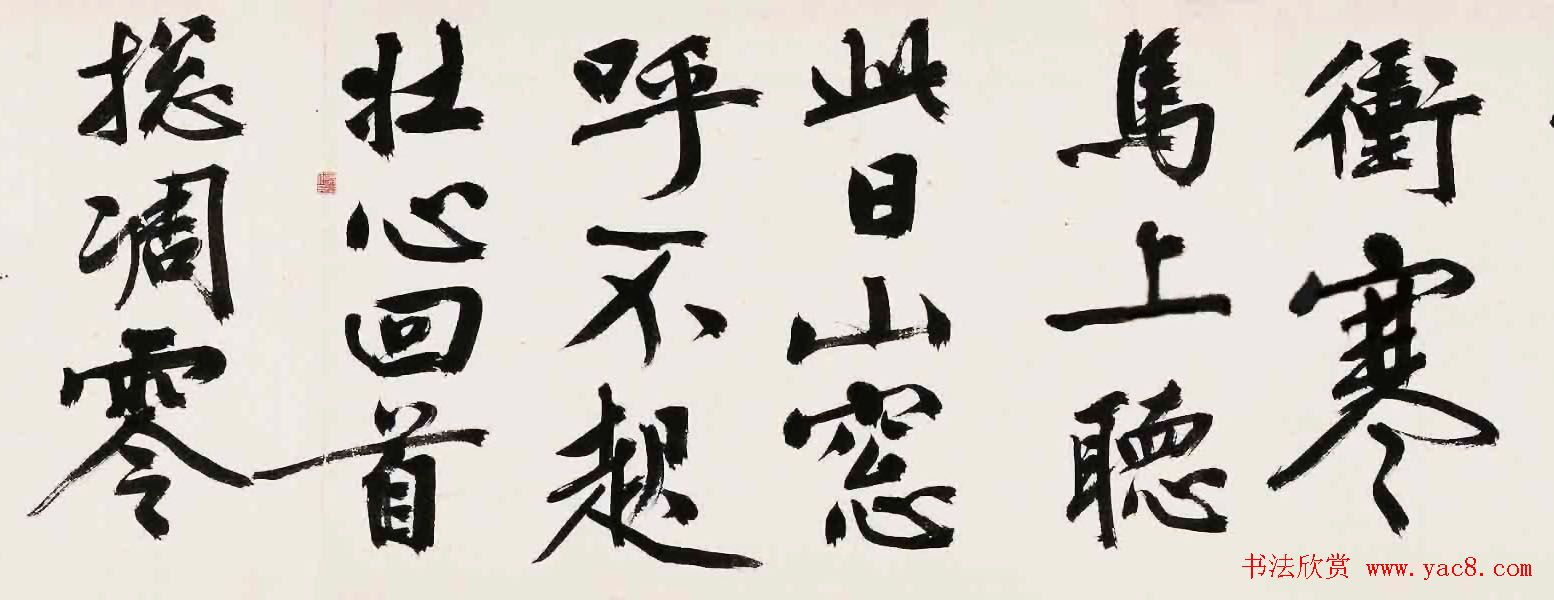 衝寒
馬上聽
此日山窓
呼不起
壯心回首
摠凋零
书法欣赏 www.yac8.com